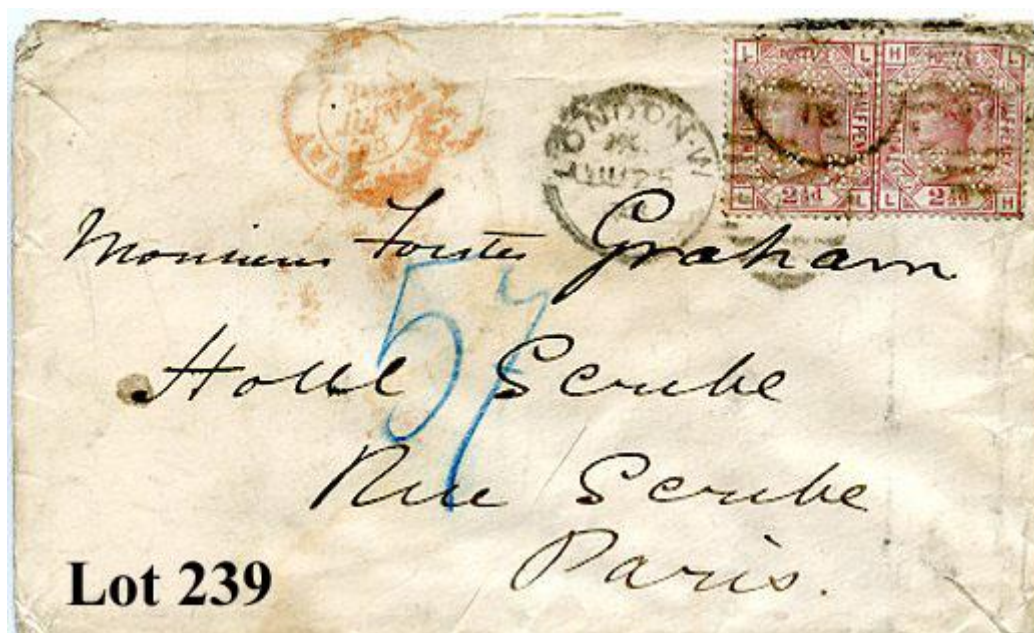 LONDON·W
L L
H L
2½d 2½d
L L
L H
Monsieur Forster Graham
57
Hotel Scribe
Rue Scribe
Paris.
Lot 239